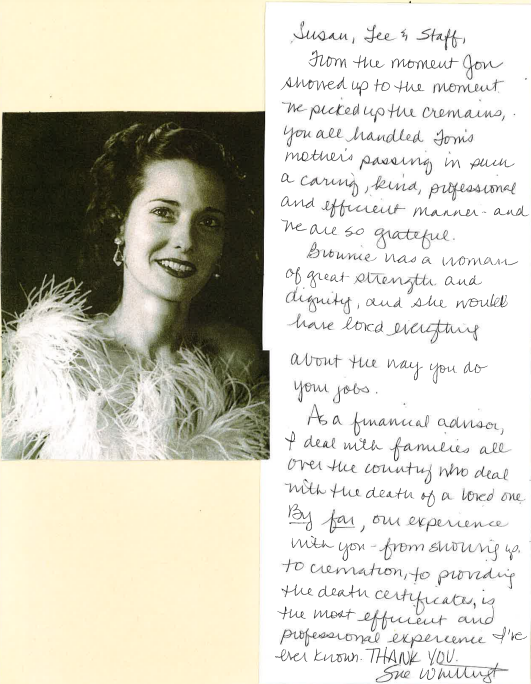 Susan, Lee & Staff,
From the moment Jon
showed up to the moment
we picked up the cremains,
you all handled Tom's
mother's passing in such
a caring, kind, professional
and efficient manner - and
we are so grateful.
Brownie was a woman
of great strength and
dignity, and she would
have loved everything
about the way you do
your jobs.
As a financial advisor,
I deal with families all
over the country who deal
with the death of a loved one.
By far, our experience
with you - from showing up,
to cremation, to providing
the death certificates, is
the most efficient and
professional experience I've
ever known. THANK YOU.
Sue